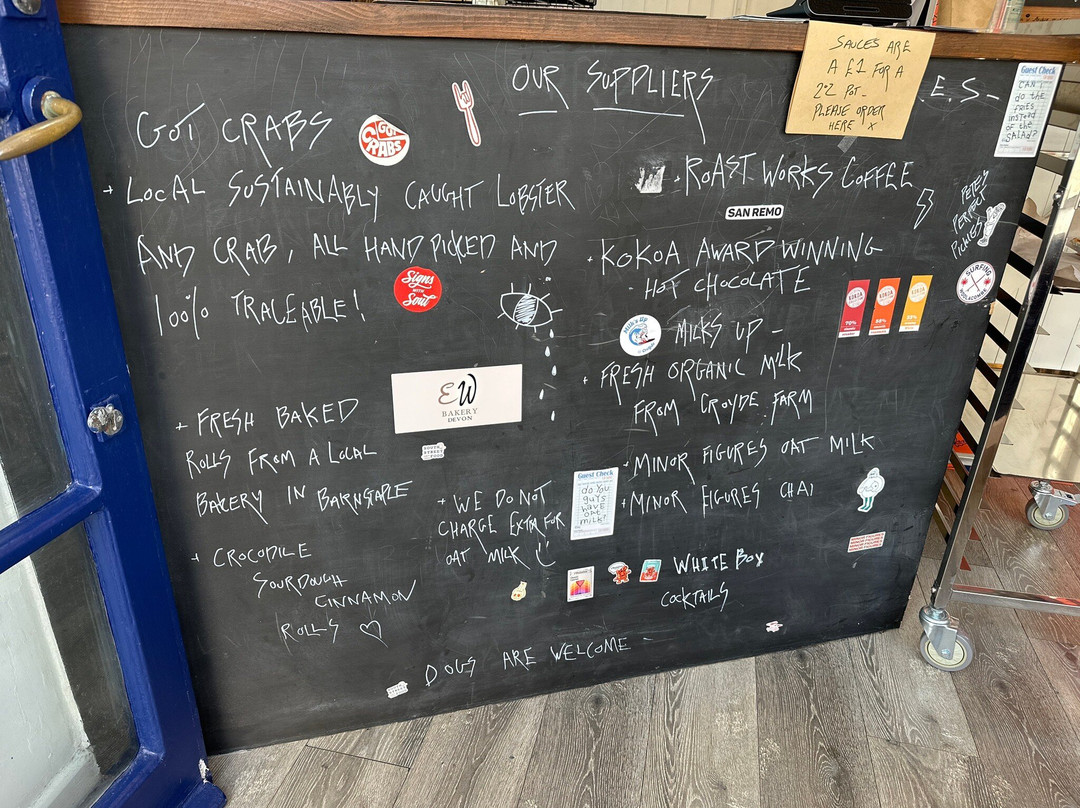 OUR SUPPLIERS
SAUCES ARE
A £1 FOR A
2oz POT -
PLEASE ORDER
HERE x
.E.S-
Guest Check
CAN I
do the
fries
instead
of the
SALAD?
GOT CRABS
GOT
CRABS
+ LOCAL SUSTAINABLY CAUGHT LOBSTER
AND CRAB, ALL HAND PICKED AND
100% TRACEABLE!
Signs
WITH
Soul
EW
BAKERY
DEVON
+ FRESH BAKED
ROLLS FROM A LOCAL
BAKERY IN BARNSTAPLE
+ CROCODILE
SOURDOUGH
CINNAMON
ROLLS
+ WE DO NOT
CHARGE EXTRA FOR
OAT MILK
Guest Check
do YOU
guys
HAVE
oat
MILK?
ROAST WORKS COFFEE
SAN REMO
KOKOA AWARD WINNING
- HOT CHOCOLATE
PETE'S
PERFECT
PICKLES
SURFING
KOKOA
70%
KOKOA
KOKOA
Milk's Up
MILKS UP -
+ FRESH ORGANIC MILK
FROM CROYDE FARM
+ MINOR FIGURES OAT MILK
+ MINOR FIGURES CHAI
WHITE BOX
COCKTAILS
DOGS ARE WELCOME